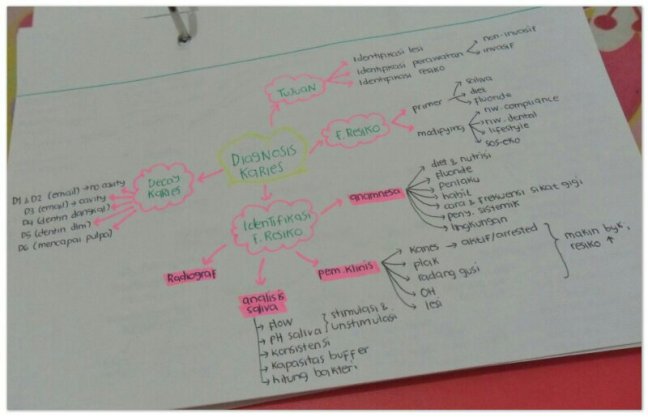 DIAGNOSIS
KARIES
TUJUAN
Identifikasi lesi
Identifikasi perawatan
non-invasif
invasif
Identifikasi resiko
F. RESIKO
primer
saliva
diet
fluoride
modifying
riw. compliance
riw. dental
lifestyle
sos-eko
Decay
KARIES
D1 & D2 (email) → no cavity
D3 (email) → cavity
D4 (dentin dangkal)
D5 (dentin dlm)
D6 (mencapai pulpa)
Identifikasi
F. RESIKO
anamnesa
diet & nutrisi
fluoride
perilaku
habit
cara & frekuensi sikat gigi
peny. sistemik
lingkungan
pem. klinis
karies → aktif/arrested
plak
radang gusi
OH
lesi
makin byk,
resiko ↑
analisis
saliva
→ flow
→ pH saliva
stimulasi &
unstimulasi
→ konsistensi
→ kapasitas buffer
→ hitung bakteri
Radiograf